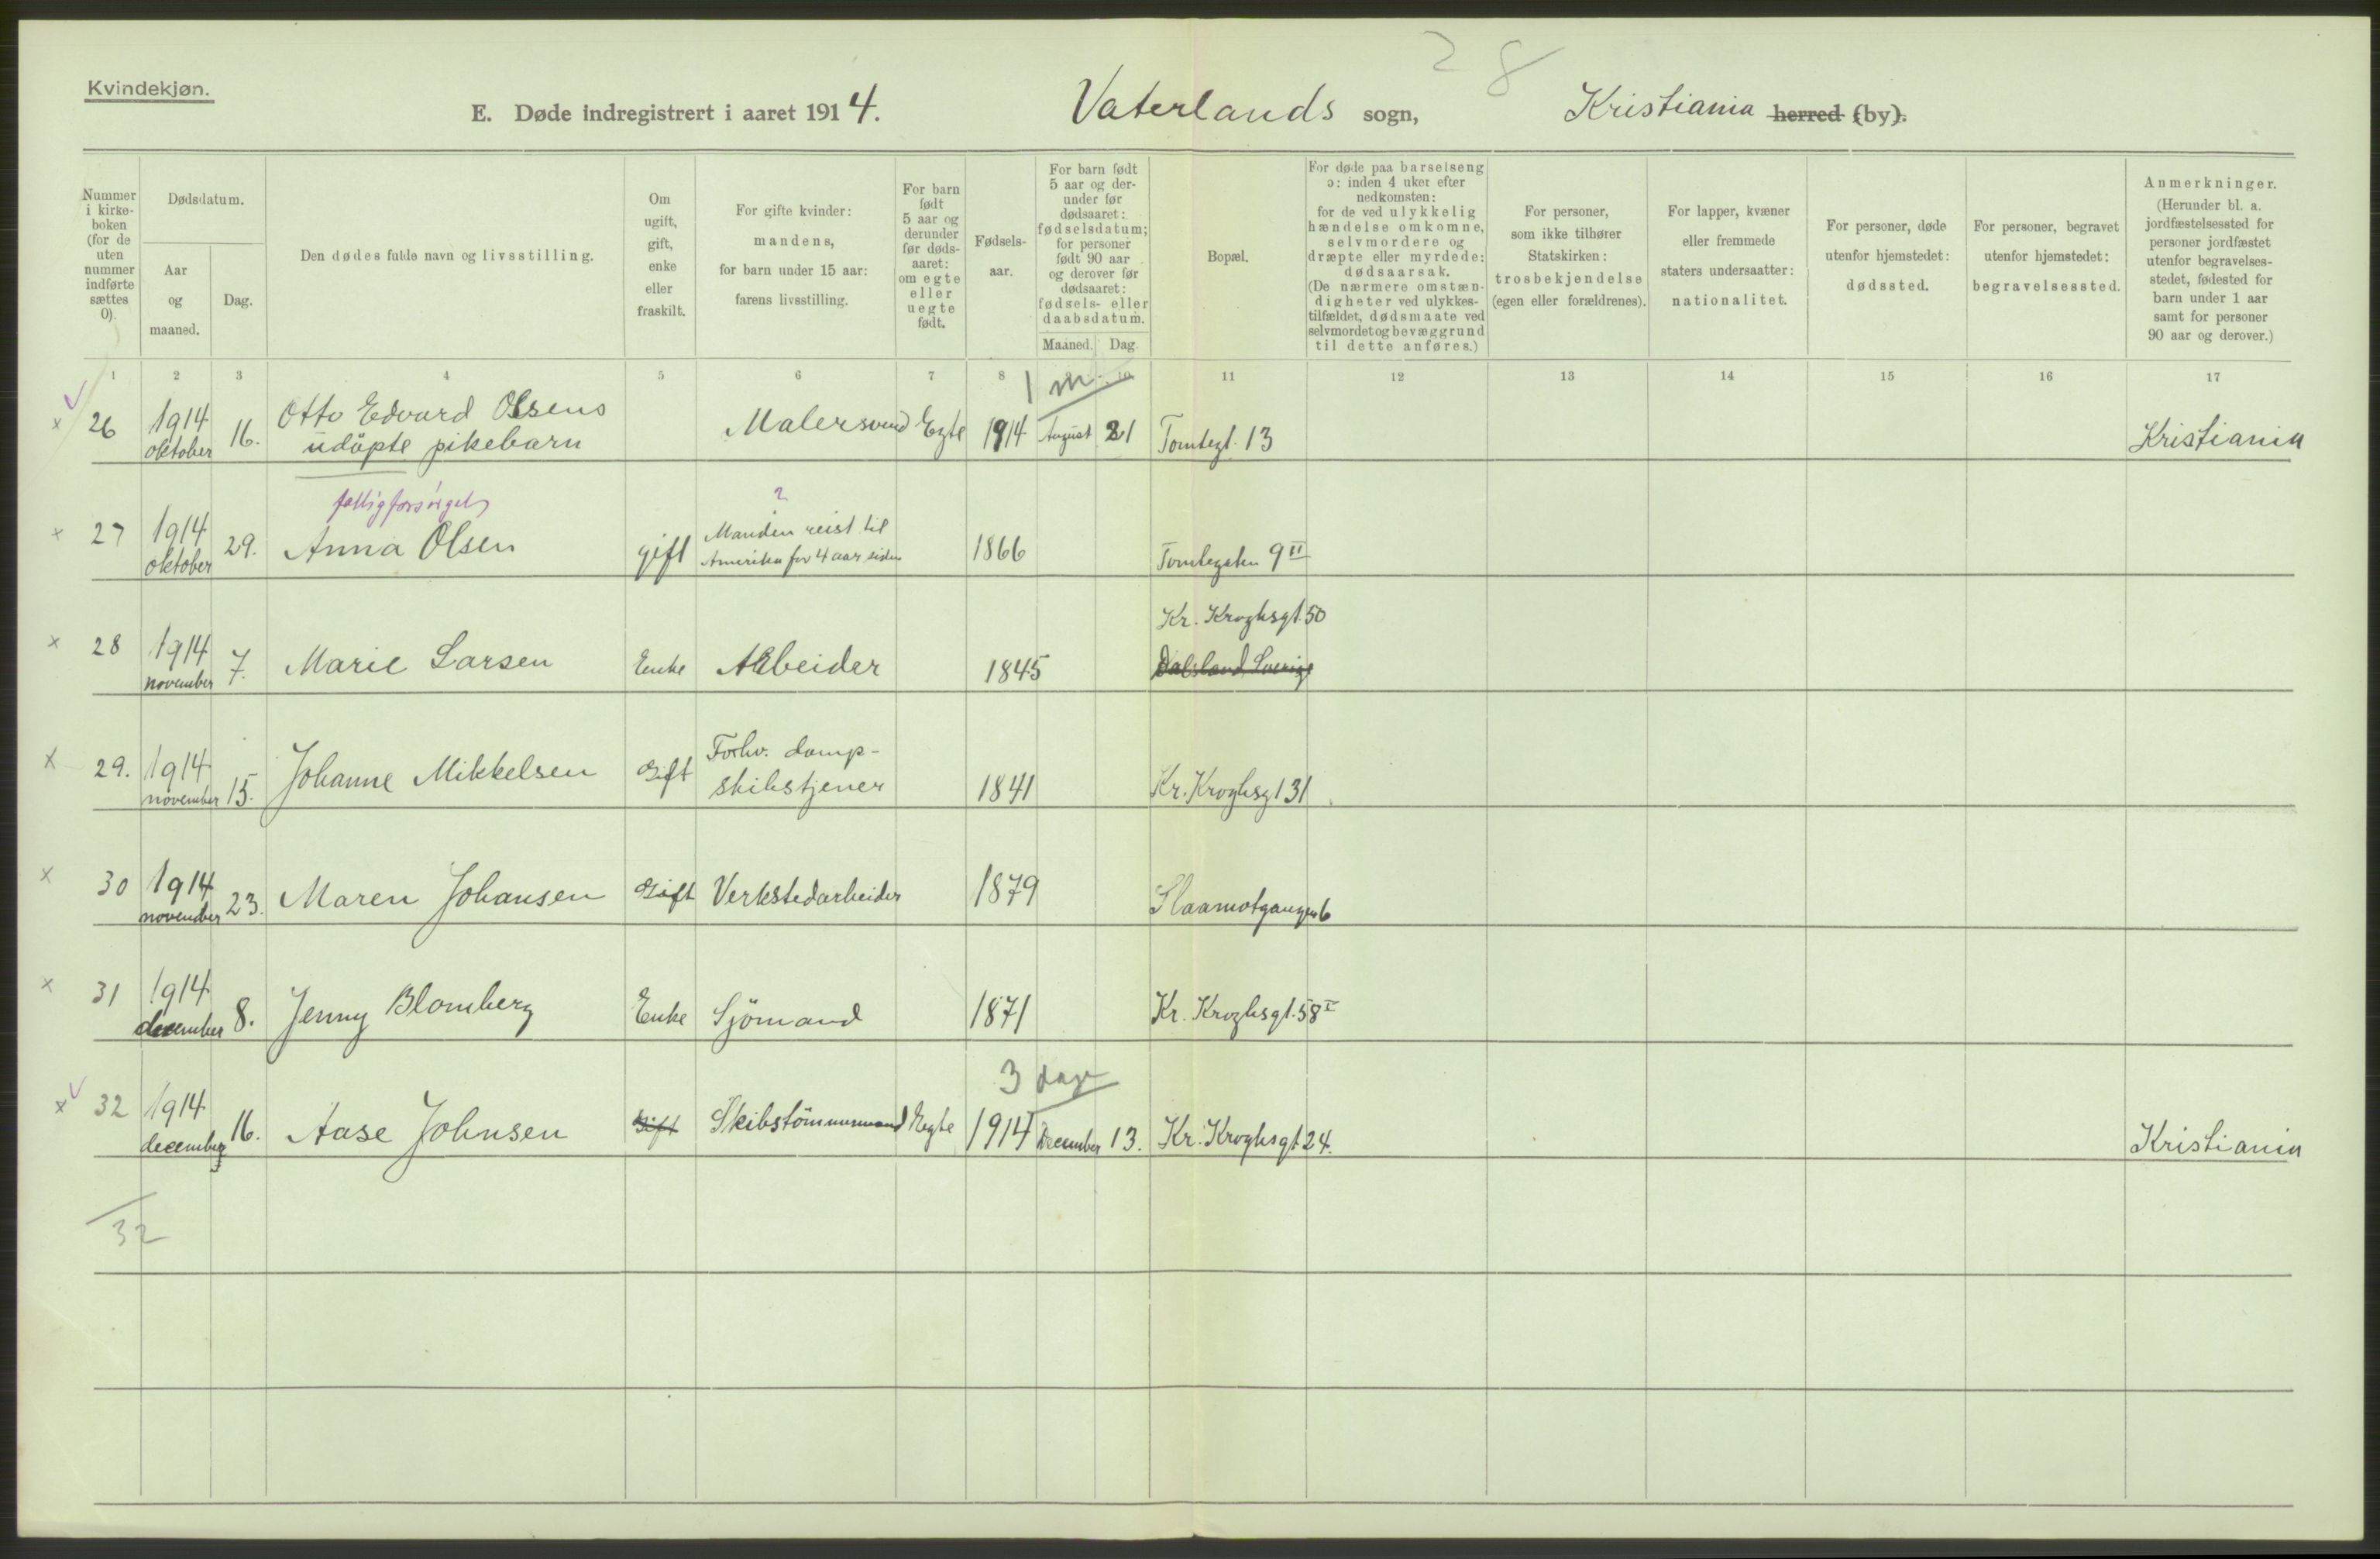 Kvindekjøn.
28
E. Døde indregistrert i aaret 1914. Vaterlands sogn, Kristiania herred (by).
Nummer i kirkeboken (for de uten nummer indførte sættes 0).
Dødsdatum.
Aar og maaned.
Dag.
Den dødes fulde navn og livsstilling.
Om ugift, gift, enke eller fraskilt.
For gifte kvinder: mandens, for barn under 15 aar: farens livsstilling.
For barn født 5 aar og derunder før dødsaaret: om egte eller uegte født.
Fødselsaar.
For barn født 5 aar og derunder før dødsaaret: fødselsdatum; for personer født 90 aar og derover før dødsaaret: fødsels- eller daabsdatum.
Maaned. Dag.
Bopæl.
For døde paa barselseng ɔ: inden 4 uker efter nedkomsten: for de ved ulykkelig hændelse omkomne, selvmordere og dræpte eller myrdede: dødsaarsak. (De nærmere omstændigheter ved ulykkestilfældet, dødsmaate ved selvmordet og bevæggrund til dette anføres.)
For personer, som ikke tilhører Statskirken: trosbekjendelse (egen eller forældrenes).
For lapper, kvæner eller fremmede staters undersaatter: nationalitet.
For personer, døde utenfor hjemstedet: dødssted.
For personer, begravet utenfor hjemstedet: begravelsessted.
Anmerkninger. (Herunder bl. a. jordfæstelsessted for personer jordfæstet utenfor begravelsesstedet, fødested for barn under 1 aar samt for personer 90 aar og derover.)
1 2 3 4 5 6 7 8 9 10 11 12 13 14 15 16 17
1 m.
26 1914 oktober 16. Otto Edvard Olsens udöpte pikebarn Malersvend Egte 1914 August 21 Tomtegt. 13 Kristiania
fattigforsörget ?
27 1914 oktober 29. Anna Olsen gift Manden reist til Amerika for 4 aar siden 1866 Tomtegaten 9 II
28 1914 november 7. Marie Larsen Enke Arbeider 1845 Kr. Kroghsgt. 50 Dalsland Sverige
29. 1914 november 15. Johanne Mikkelsen Gift Forhv. dampskibstjener 1841 Kr. Kroghsgt 31
30 1914 november 23. Maren Johansen Gift Verkstedarbeider 1879 Slaamotgangen 6
31 1914 december 8. Jenny Blomberg Enke Sjömand 1871 Kr. Kroghsgt. 58 I
3 dage
32 1914 december 16. Aase Johnsen Gift Skibstömmermand Egte 1914 December 13. Kr. Kroghsgt. 24. Kristiania
32